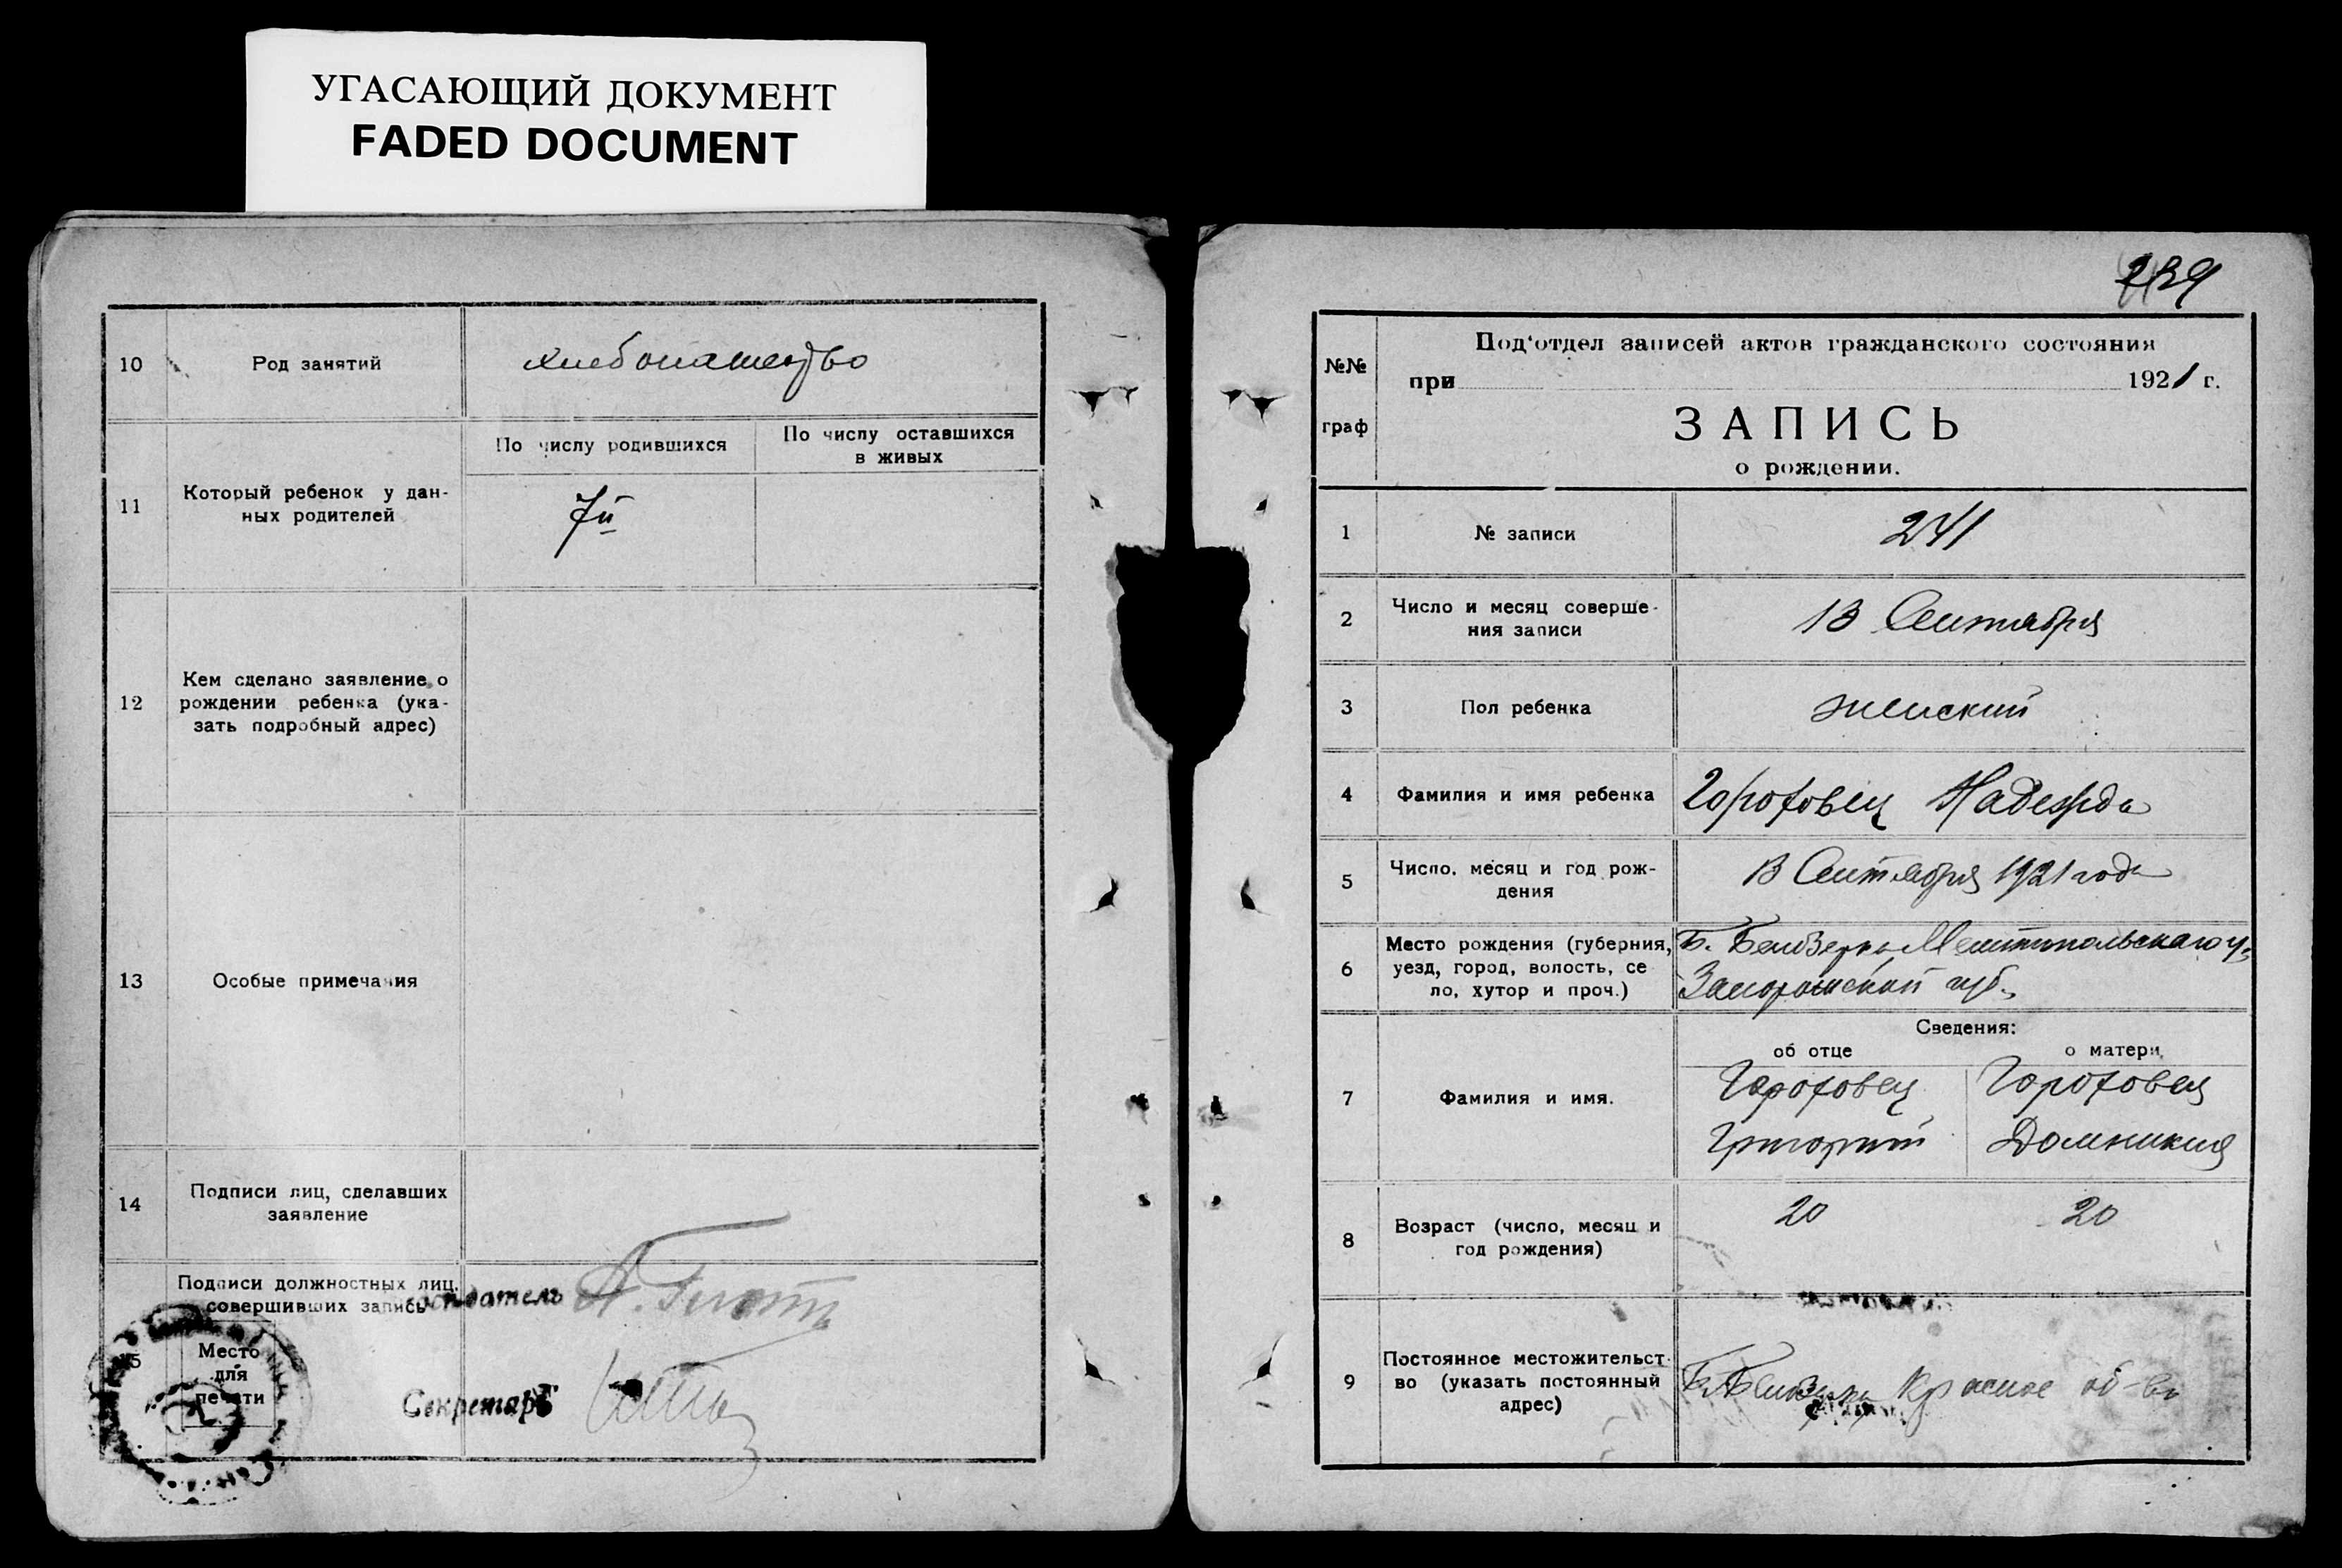 УГАСАЮЩИЙ ДОКУМЕНТ
FADED DOCUMENT
10 Род занятий хлебопашество
11 Который ребенок у дан-
ных родителей
По числу родившихся По числу оставшихся
в живых
7й
12 Кем сделано заявление о
рождении ребенка (ука-
зать подробный адрес)
13 Особые примечания
14 Подписи лиц, сделавших
заявление
Подписи должностных лиц,
совершивших запись
15 Место
для
печати
Секретарь
239
№№
граф
Под'отдел записей актов гражданского состояния
при 1921 г.
ЗАПИСЬ
о рождении.
1 № записи 241
2 Число и месяц соверше-
ния записи
13 Сентября
3 Пол ребенка женский
4 Фамилия и имя ребенка Гороховец Надежда
5 Число, месяц и год рож-
дения
13 Сентября 1921 года
6 Место рождения (губерния,
уезд, город, волость, се
ло, хутор и проч.)
Б. Белозерка Мелитопольскаго у.
Запорожской губ.
Сведения:
об отце о матери
7 Фамилия и имя.
Гороховец Гороховец
Григорий Домникия
8 Возраст (число, месяц и
год рождения)
20 20
9 Постоянное местожительст-
во (указать постоянный
адрес)
Б. Белозерка Красное об-во